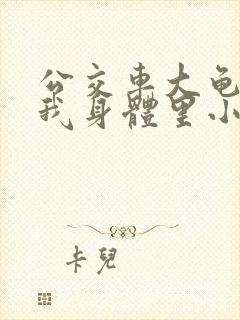 公交車大龟
我身體里小
卡兒